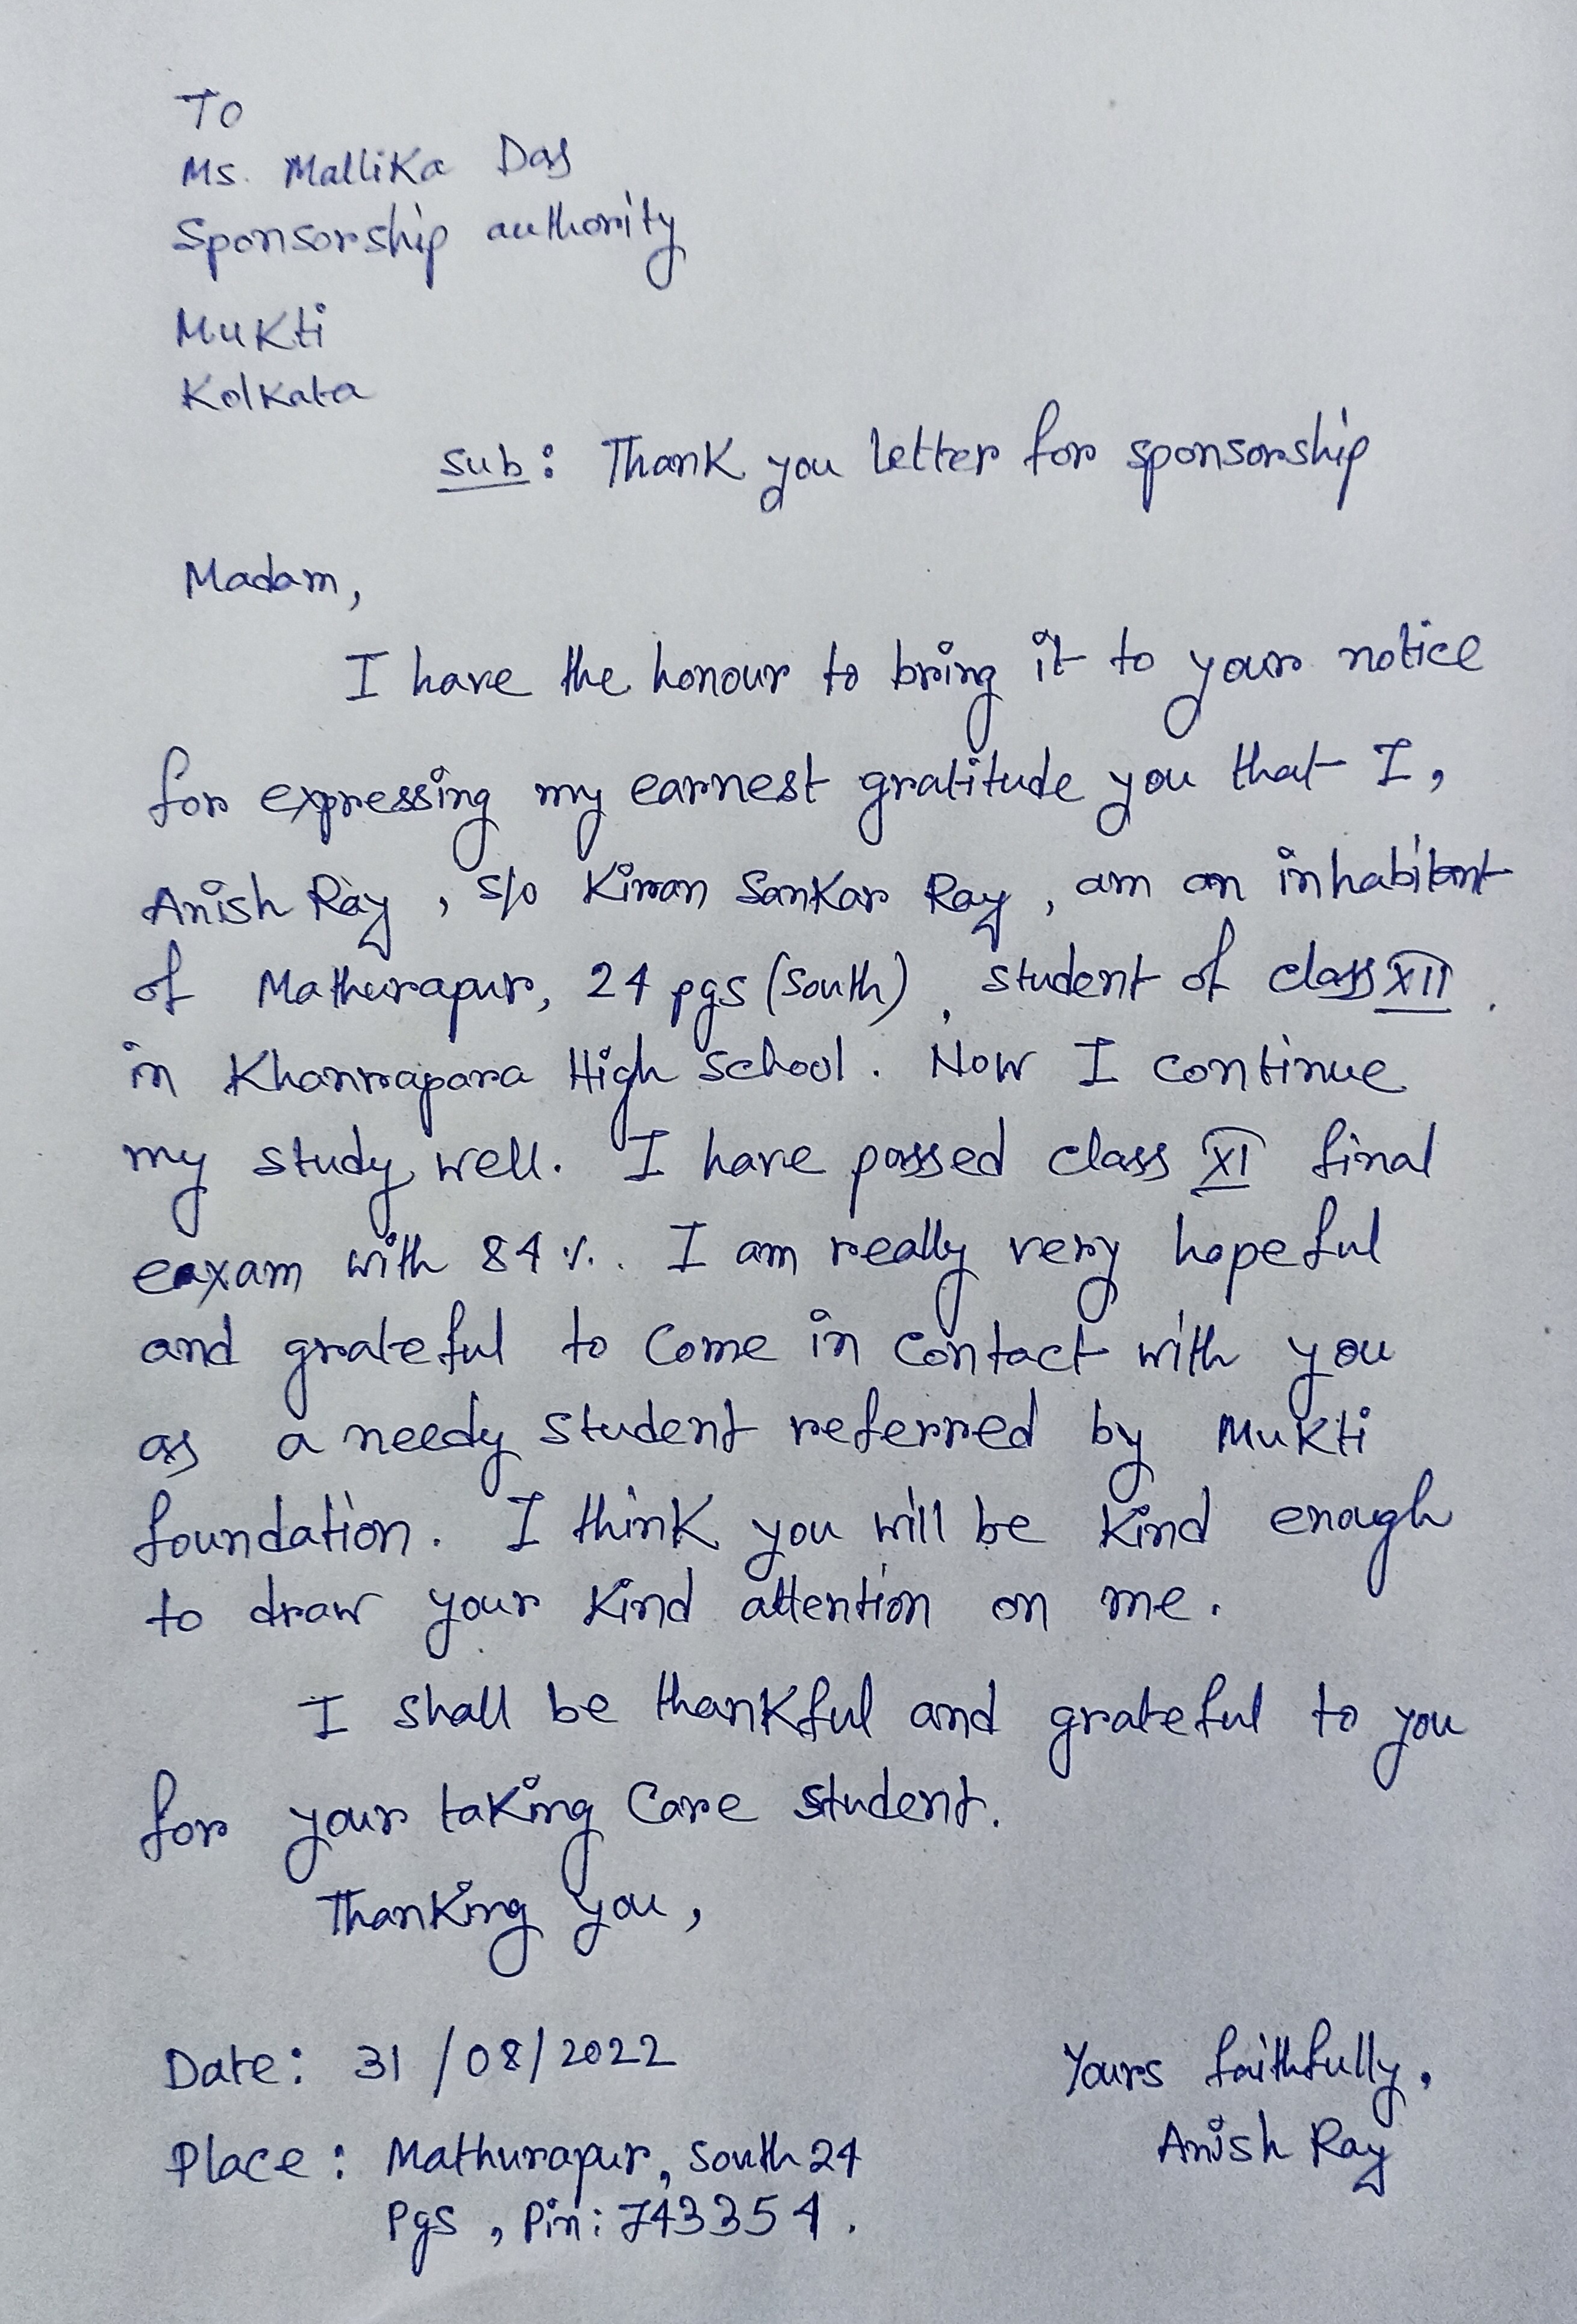 To
Ms. Mallika Das
Sponsorship authority
Mukti
Kolkata
Sub: Thank you letter for sponsorship
Madam,
I have the honour to bring it to your notice
for expressing my earnest gratitude you that I,
Anish Ray, s/o Kiran Sankar Ray, am an inhabitant
of Mathurapur, 24 pgs (South), student of class XII
in Khanrapara High School. Now I continue
my study well. I have passed class XI final
exam with 84%. I am really very hopeful
and grateful to come in contact with you
as a needy student referred by Mukti
foundation. I think you will be kind enough
to draw your kind attention on me.
I shall be thankful and grateful to you
for your taking care student.
Thanking you,
Date: 31/08/2022
Yours faithfully,
Anish Ray
Place: Mathurapur, South 24
Pgs, Pin: 743354.